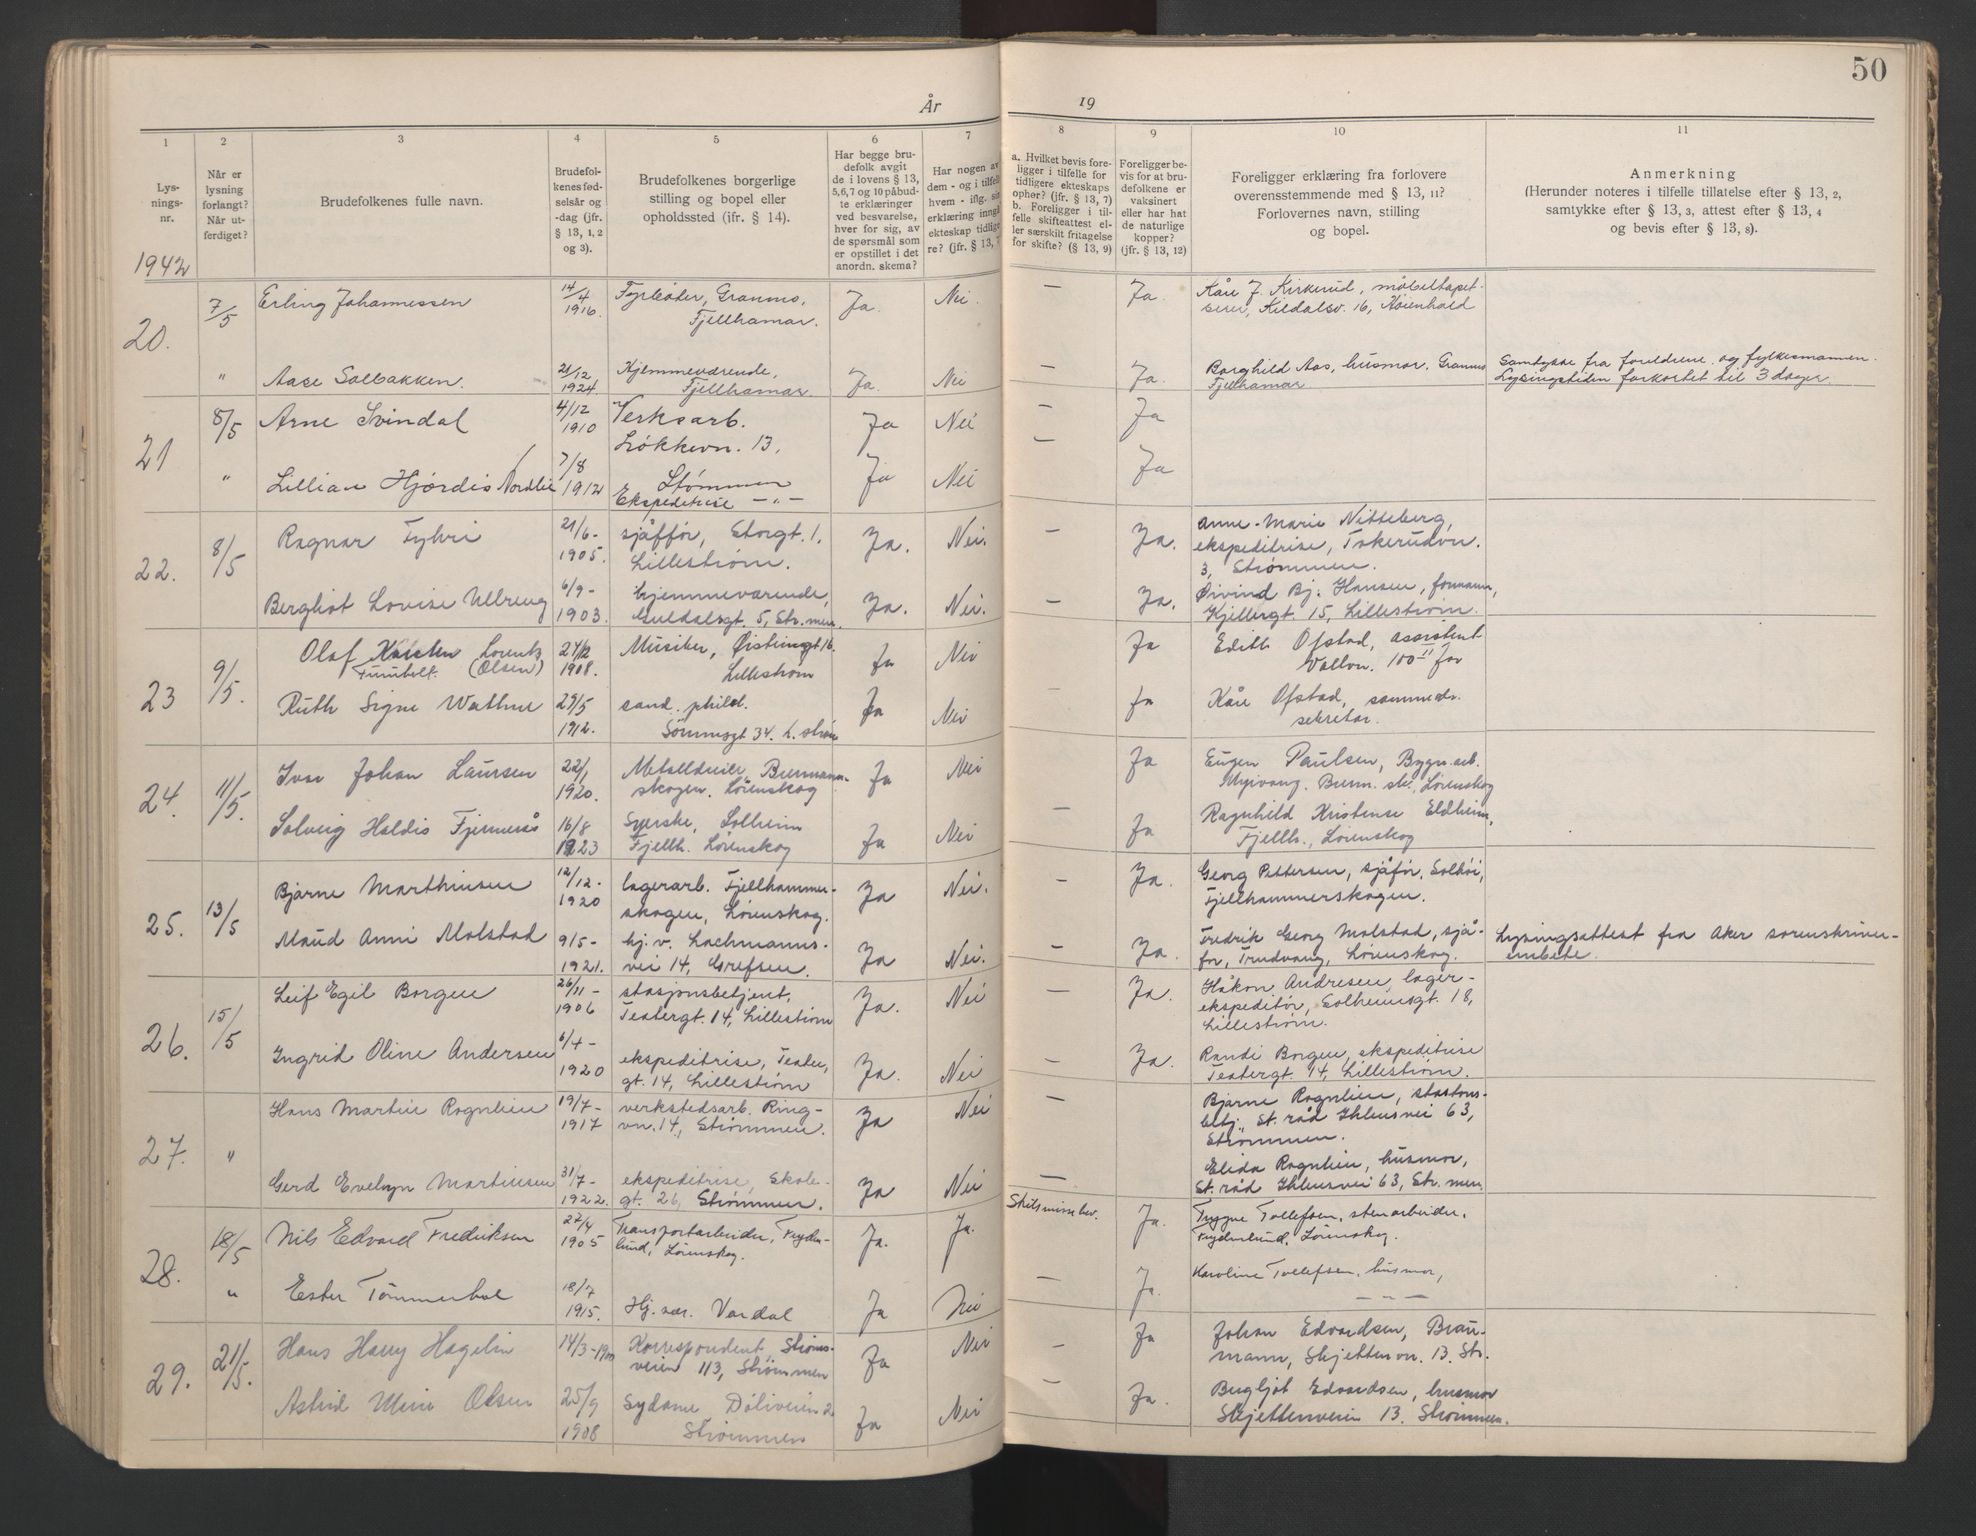 50
År 19
1 2 3 4 5 6 7 8 9 10 11
Lys-
nings-
nr.
Når er
lysning
forlangt?
Når ut-
ferdiget?
Brudefolkenes fulle navn.
Brudefol-
kenes fød-
selsår og
-dag (jfr.
§ 13, 1, 2
og 3).
Brudefolkenes borgerlige
stilling og bopel eller
opholdssted (jfr. § 14).
Har begge bru-
defolk avgit
de i lovens § 13,
5,6,7 og 10 påbud-
te erklæringer
ved besvarelse,
hver for sig, av
de spørsmål som
er opstillet i det
anordn. skema?
Har nogen av
dem - og i tilfelle
hvem - iflg. sin
erklæring inngå
ekteskap tidlige
re? (jfr. § 13, 7
a. Hvilket bevis fore-
ligger i tilfelle for
tidligere ekteskaps
ophør? (jfr. § 13, 7)
b. Foreligger i til-
felle skifteattest el-
ler særskilt fritagelse
for skifte? (§ 13, 9)
Foreligger be-
vis for at bru-
defolkene er
vaksinert
eller har hat
de naturlige
kopper?
(jfr. § 13, 12)
Foreligger erklæring fra forlovere
overensstemmende med § 13, 11?
Forlovernes navn, stilling
og bopel.
Anmerkning
(Herunder noteres i tilfelle tillatelse efter § 13, 2,
samtykke efter § 13, 3, attest efter § 13, 4
og bevis efter § 13, 8).
1942
20. 7/5 Erling Johannessen 14/4 1916. Fyrbøter, Granmo, Fjellhamar. Ja. Nei. — Ja. Kåre J. Kirkerud, møbeltapet-
serer, Kildalsv. 16, Høienhald
" Aase Solbakken. 21/12 1924. Hjemmeværende, Fjellhamar. Ja. Nei — Ja. Borghild Aas, husmor, Granmo
Fjellhamar
Samtykke fra foreldrene og fylkesmannen.
Lysingstiden forkortet til 3 dager.
21 8/5 Arne Svindal 4/12 1910 Verksarb. Løkkevn. 13, Ja Nei — Ja
" Lillian Hjørdis Nordlie 7/8 1912 Strømmen
Ekspeditrise — " — Ja Nei — Ja
22. 8/5 Ragnar Fyhri 21/6 - 1905. sjåffør, Storgt. 1, Lillestrøm. Ja. Nei. — Ja. Anne-Marie Nitteberg,
ekspeditrise, Tokerudvn.
3, Strømmen.
Bergliot Lovise Ullreng 6/9 - 1903. hjemmeværende,
Guldalsgt. 5, Str.men. Ja. Nei. — Ja. Øivind Bj. Hansen, formann,
Kjellergt. 15, Lillestrøm.
23 9/5. Olaf Karsten Lorentz
(Olsen) 24/12 1908. Musiker, Øistinsgt 16.
Lillestrøm Ja Nei Ja Edith Ofstad, assistent
Vallvn. 100
Ruth Signe Wathne 29/5 1912. cand. philol.
34. L. strøm Ja Nei — Ja Kåre Ofstad,
sekretær.
24. 11/5. Ivar Johan Laursen 22/1 1920. Metalldreier, Burmann-
skogen. Lørenskog Ja Nei Ja Eugen Paulsen, Bygn.arb.
Lørenskog
Solveig Haldis Fjermerås 16/8 1923 Syerske, Solheim
Fjellh. Lørenskog Ja Nei — Ja Ragnhild Kristense Eldheim,
Fjellh., Lørenskog
25. 13/5 Bjarne Marthinsen 12/12 - 1920 lagerarb. Fjellhammer-
skogen, Lørenskog. Ja Nei. — Ja. Georg Pettersen, sjåfør, Solhøi,
Fjellhammerskogen.
Maud Anni Molstad 9/5 - 1921. hj.v. Lachmanns-
vei 14, Grefsen. Ja Nei. — Ja. Fredrik Georg Molstad, sjå-
før, Trudvang, Lørenskog.
Lysingsattest fra Aker sorenskriver-
embete.
26. 15/5 Leif Egil Borgen 26/11 - 1906 stasjonsbetjent,
Teatergt. 14, Lillestrøm Ja. Nei Ja. Håkon Andresen, lager-
ekspeditør, Solheimsgt. 18,
Lillestrøm.
Ingrid Oline Andersen 6/4 - 1920 ekspeditrise, Teater-
gt. 14, Lillestrøm Ja. Nei — Ja. Randi Borgen, ekspeditrise
Teatergt. 14, Lillestrøm.
27. " Hans Martin Rognlien 19/7 - 1917 verkstedsarb. Ring-
vn. 14, Strømmen. Ja Nei — Bjarne Rognlien, stasjons-
betj., St. råd Ihlensvei 63,
Strømmen.
Gerd Evelyn Martinsen 31/7 - 1922. ekspeditrise, Skole-
gt. 26, Strømmen. Ja Nei — Elida Rognlien, husmor,
St. råd Ihlensvei 63, Str.men.
28. 18/5 Nils Edvard Fredriksen 27/4 1905 Transportarbeider, Fryden-
lund, Lørenskog. Ja. Ja. Skilsmissebev. Ja. Trygve Tollefsen, stenarbeider,
Frydenlund, Lørenskog.
" Ester Tømmerhol 18/7 1915. Hj. vær. Vardal Ja Nei — Ja. Karoline Tollefsen, husmor,
— " —
29. 21/5. Hans Harry Hagelin 14/3-1900 Korrespondent, Strøms-
veien 113, Strømmen Ja Nei — Ja Johan Edvardsen, Bran-
mann, Skjettenvn. 13. Str.
Astrid Olsen 25/9 1908 Sydame Døliveien 2
Strømmen Ja Nei — Ja. Bergljot Edvardsen, husmor
Skjettenveien 13. Strømmen.